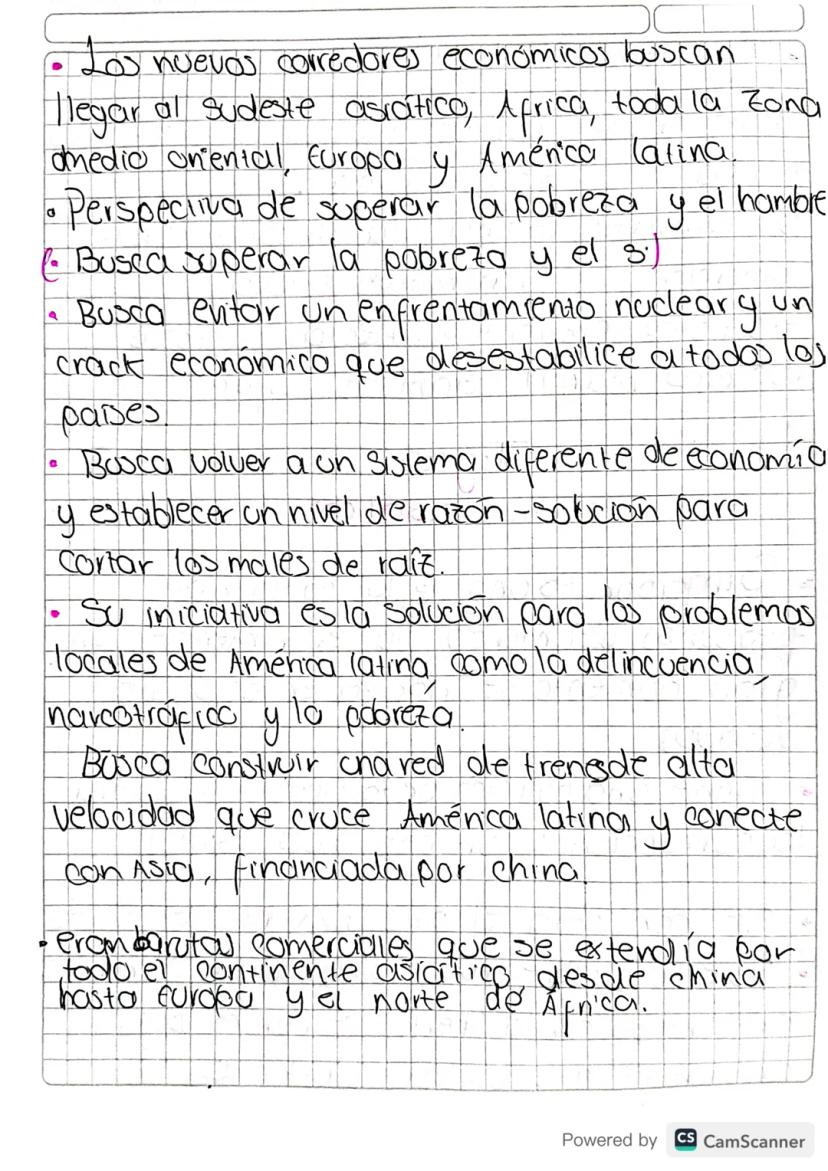 • Los nuevos corredores económicos buscan
llegar al sudeste asiático, África, toda la zona
medio oriental, Europa y América latina.
• Perspectiva de superar la pobreza y el hambre
(• Busca superar la pobreza y el s.)
• Busca evitar un enfrentamiento nuclear y un
crack económico que desestabilice a todos los
países.
• Busca volver a un sistema diferente de economía
y establecer un nivel de razón - solución para
cortar los males de raíz.
• Su iniciativa es la solución para los problemas
locales de América latina, como la delincuencia,
narcotráfico y la pobreza.
Busca construir una red de trenes de alta
velocidad que cruce América latina y conecte
con Asia, financiada por china.
• eran rutas comerciales que se extendía por
todo el continente asiático, desde china
hasta Europa y el norte de África.
Powered by CS CamScanner